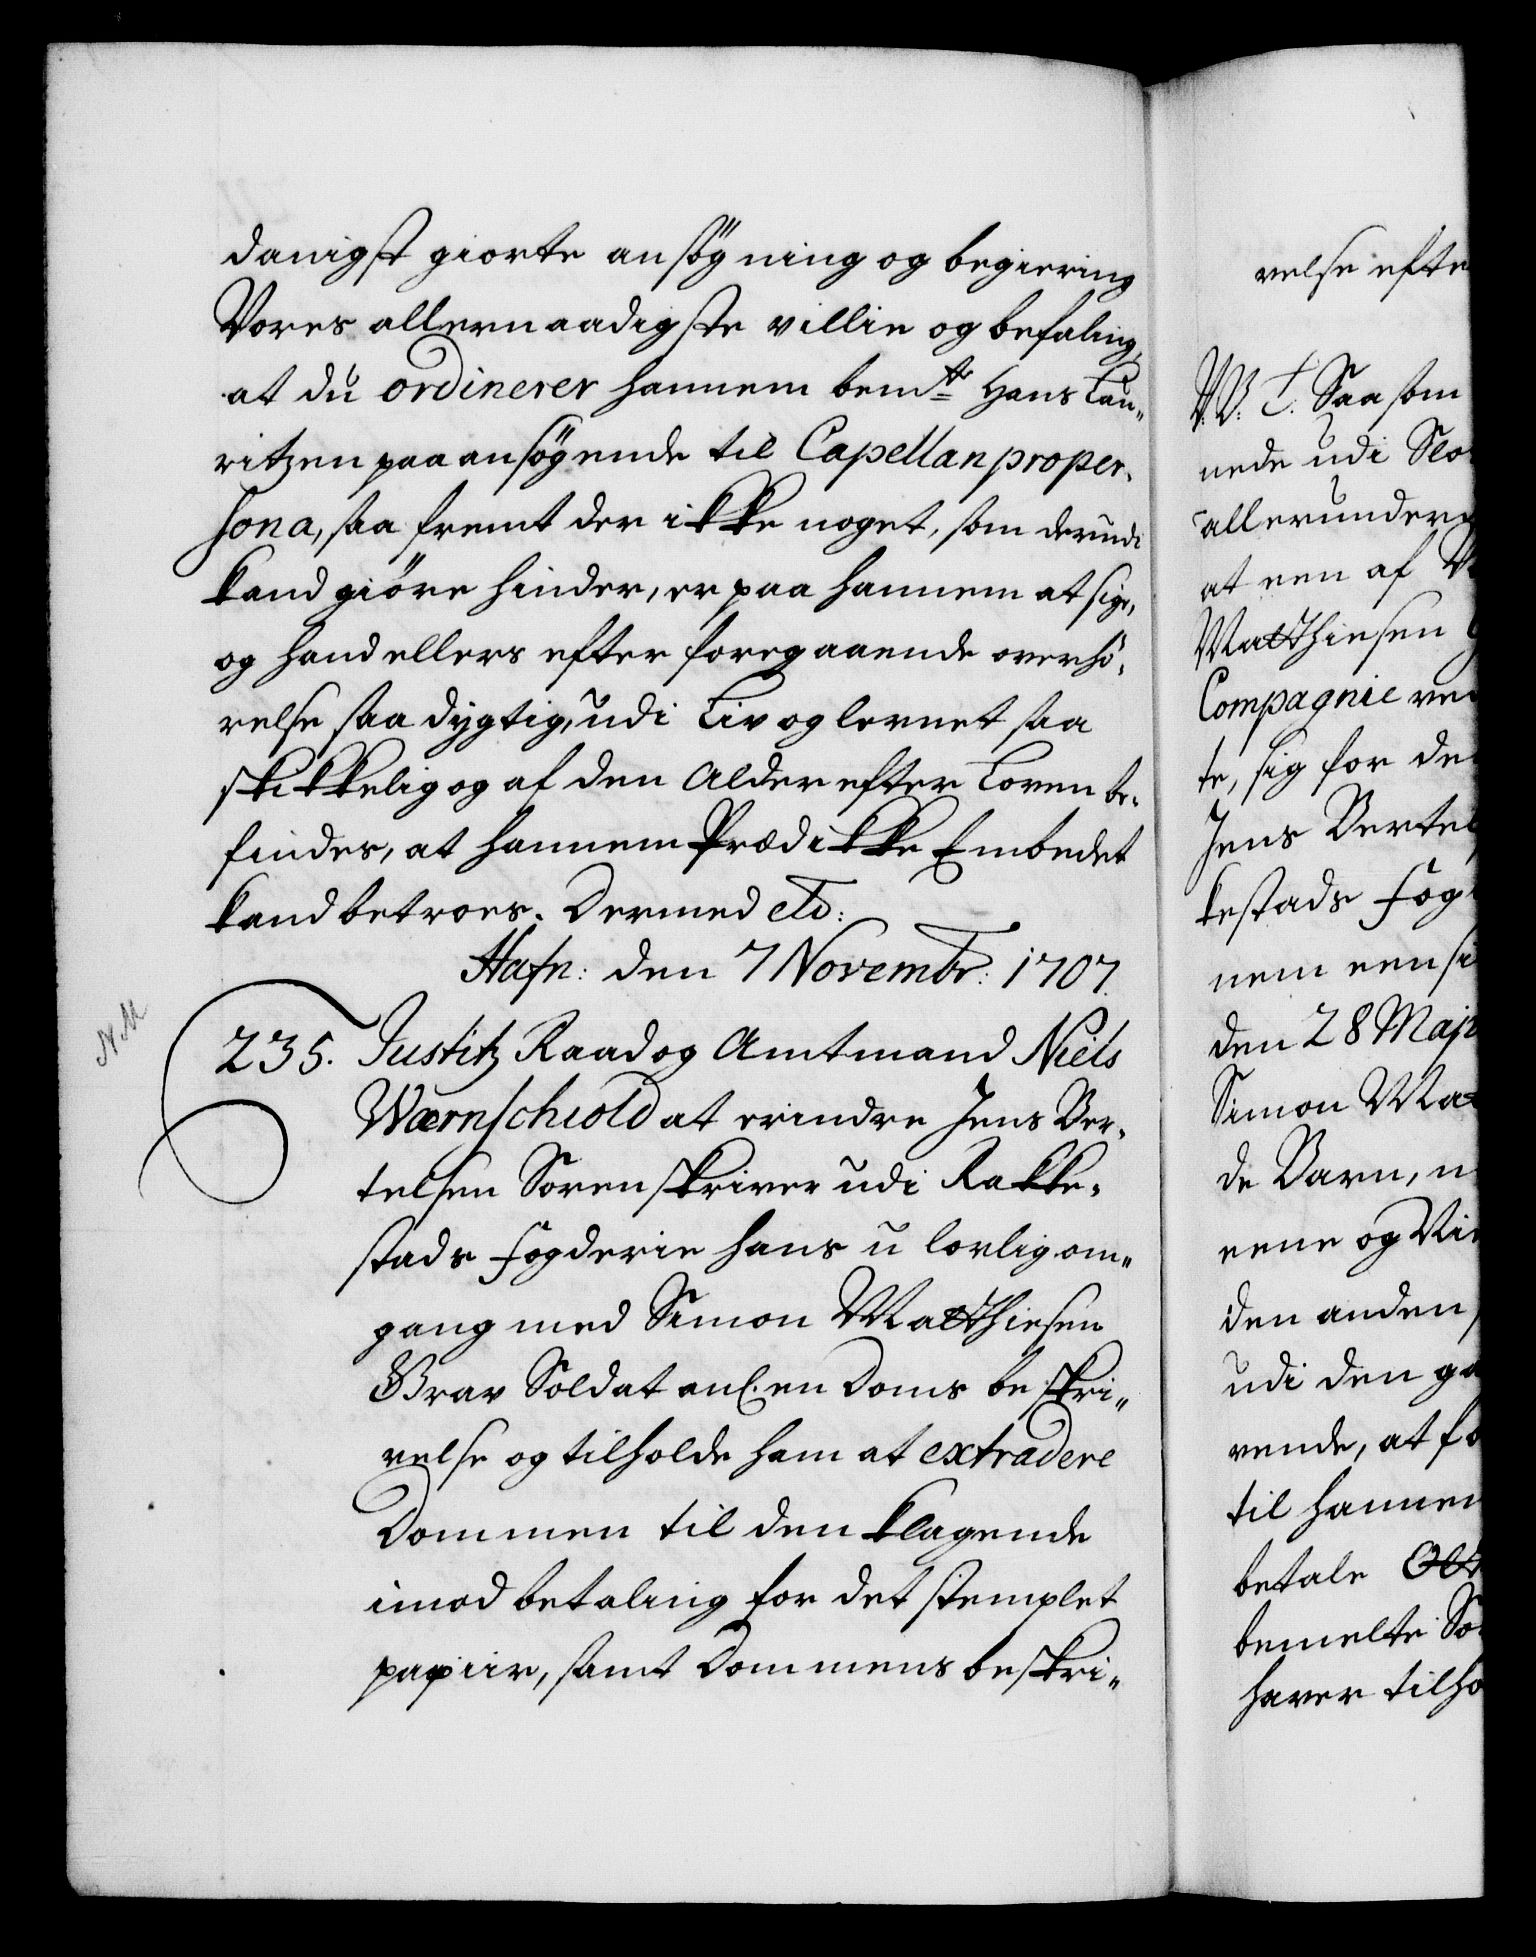 danigst giorte ansøgning og begiering
Vores allernaadigste villie og befaling,
at du ordinerer hannem bemte Hans Lau„
ritzen paa ansøgende til Capellan proper„
sona, saa fremt der ikke noget, som derudi
kand giöre hinder, er paa hannem at sige,
og hand ellers efter foregaaende overhö„
relse saa dygtig, udi Liv og levnet saa
skikkelig og af den Alder efter Loven be„
findes, at hannem Prædikke Embedet
kand betroes. Dermed etc:
Hafn: den 7 Novembr: 1707.
NM
235. Justitz Raad og Amtmand Niels
Wærnschiold at erindre Jens Ber„
telsen Sorenskriver udi Rakke„
stads Fogderie hans u lovlig om„
gang med Simon Matthiesen
Brav Soldat anl. en Doms beskri„
velse og tilholde ham at extradere
Dommen til den klagende
imod betaling for det stemplet
papiir, samt Dommens beskri„
velse efte
V.B: T. Saasom
nede udi Slo
allerunder
at een af V
Matthiesen
Compagnie ve
te, sig for de
Jens Bertel
kestads Fog
nem een si
den 28 Maji
Simon Mat
de Barn, n
eene og Vi
den anden,
udi den ga
vende, at fo
til hannem
betale
bemelte So
haver tilho